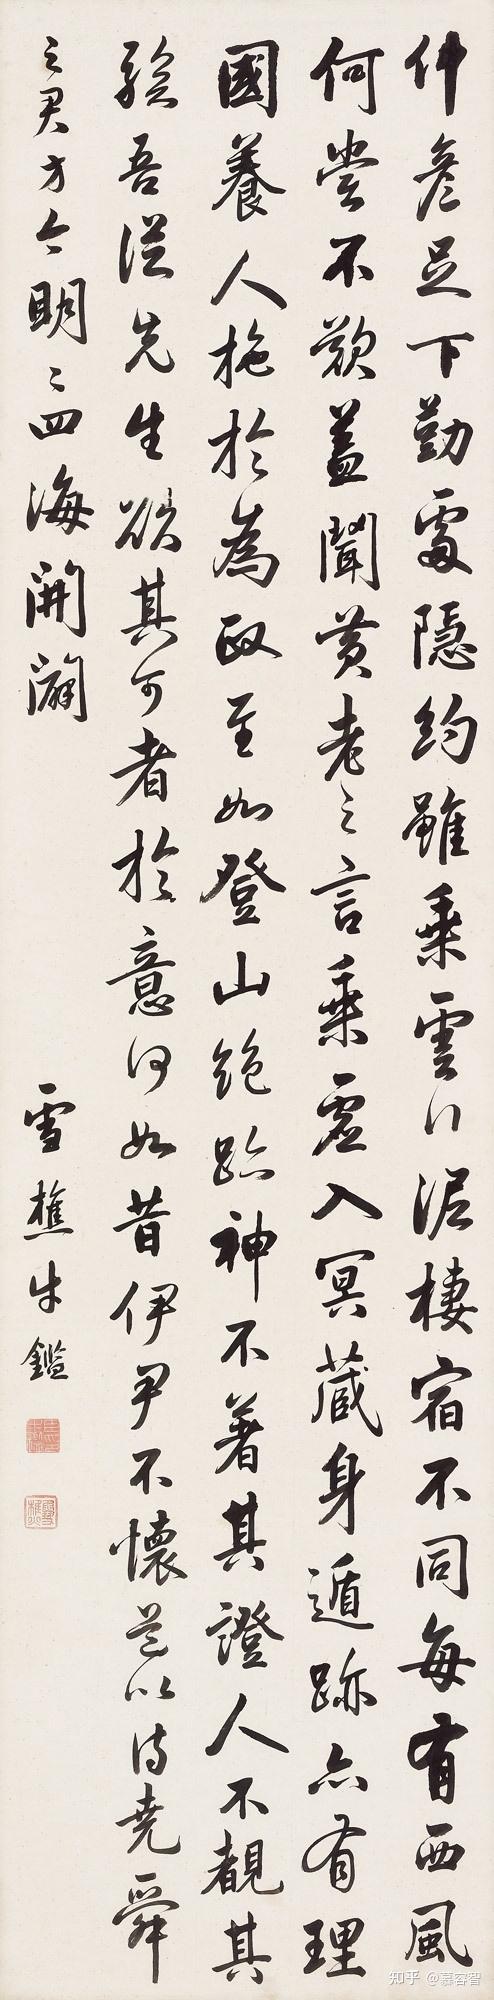 仲彥足下勤處隱約雖乘雲行泥棲宿不同每有西風
何嘗不歎蓋聞黃老之言乘虛入冥藏身遁跡亦有理
國養人施於為政至如登山絕跡神不著其證人不覩其
驗吾從先生欲其可者於意何如昔伊尹不懷道以待堯舜
之君方今明〻四海開闢
雪樵牛鑑
知乎 @慕容智